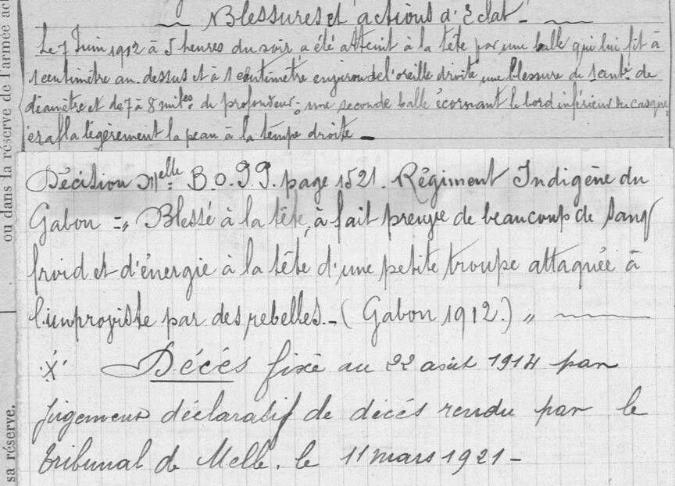 Blessures et actions d'Eclat.
Le 7 Juin 1912 à 5 heures du soir a été atteint à la tête par une balle qui lui fit à
1 centimètre au-dessus et à 1 centimètre environ de l'oreille droite, une blessure de 1 centre de
diamètre et de 7 à 8 milles de profondeur; une seconde balle écornant le bord inférieur du casque
érafla légèrement la peau à la tempe droite.
ou dans la réserve de l'armée act
Décision Melle B.O.P.P. page 1521. Régiment Indigène du
Gabon =„ Blessé à la tête, à fait preuve de beaucoup de sang
froid et d'énergie à la tête d'une petite troupe attaquée à
l'improviste par des rebelles. (Gabon 1912.) „
X Décés fixé au 22 août 1914 par
jugement déclaratif de décés rendu par le
tribunal de Melle. le 11 mars 1921 -
sa réserve.